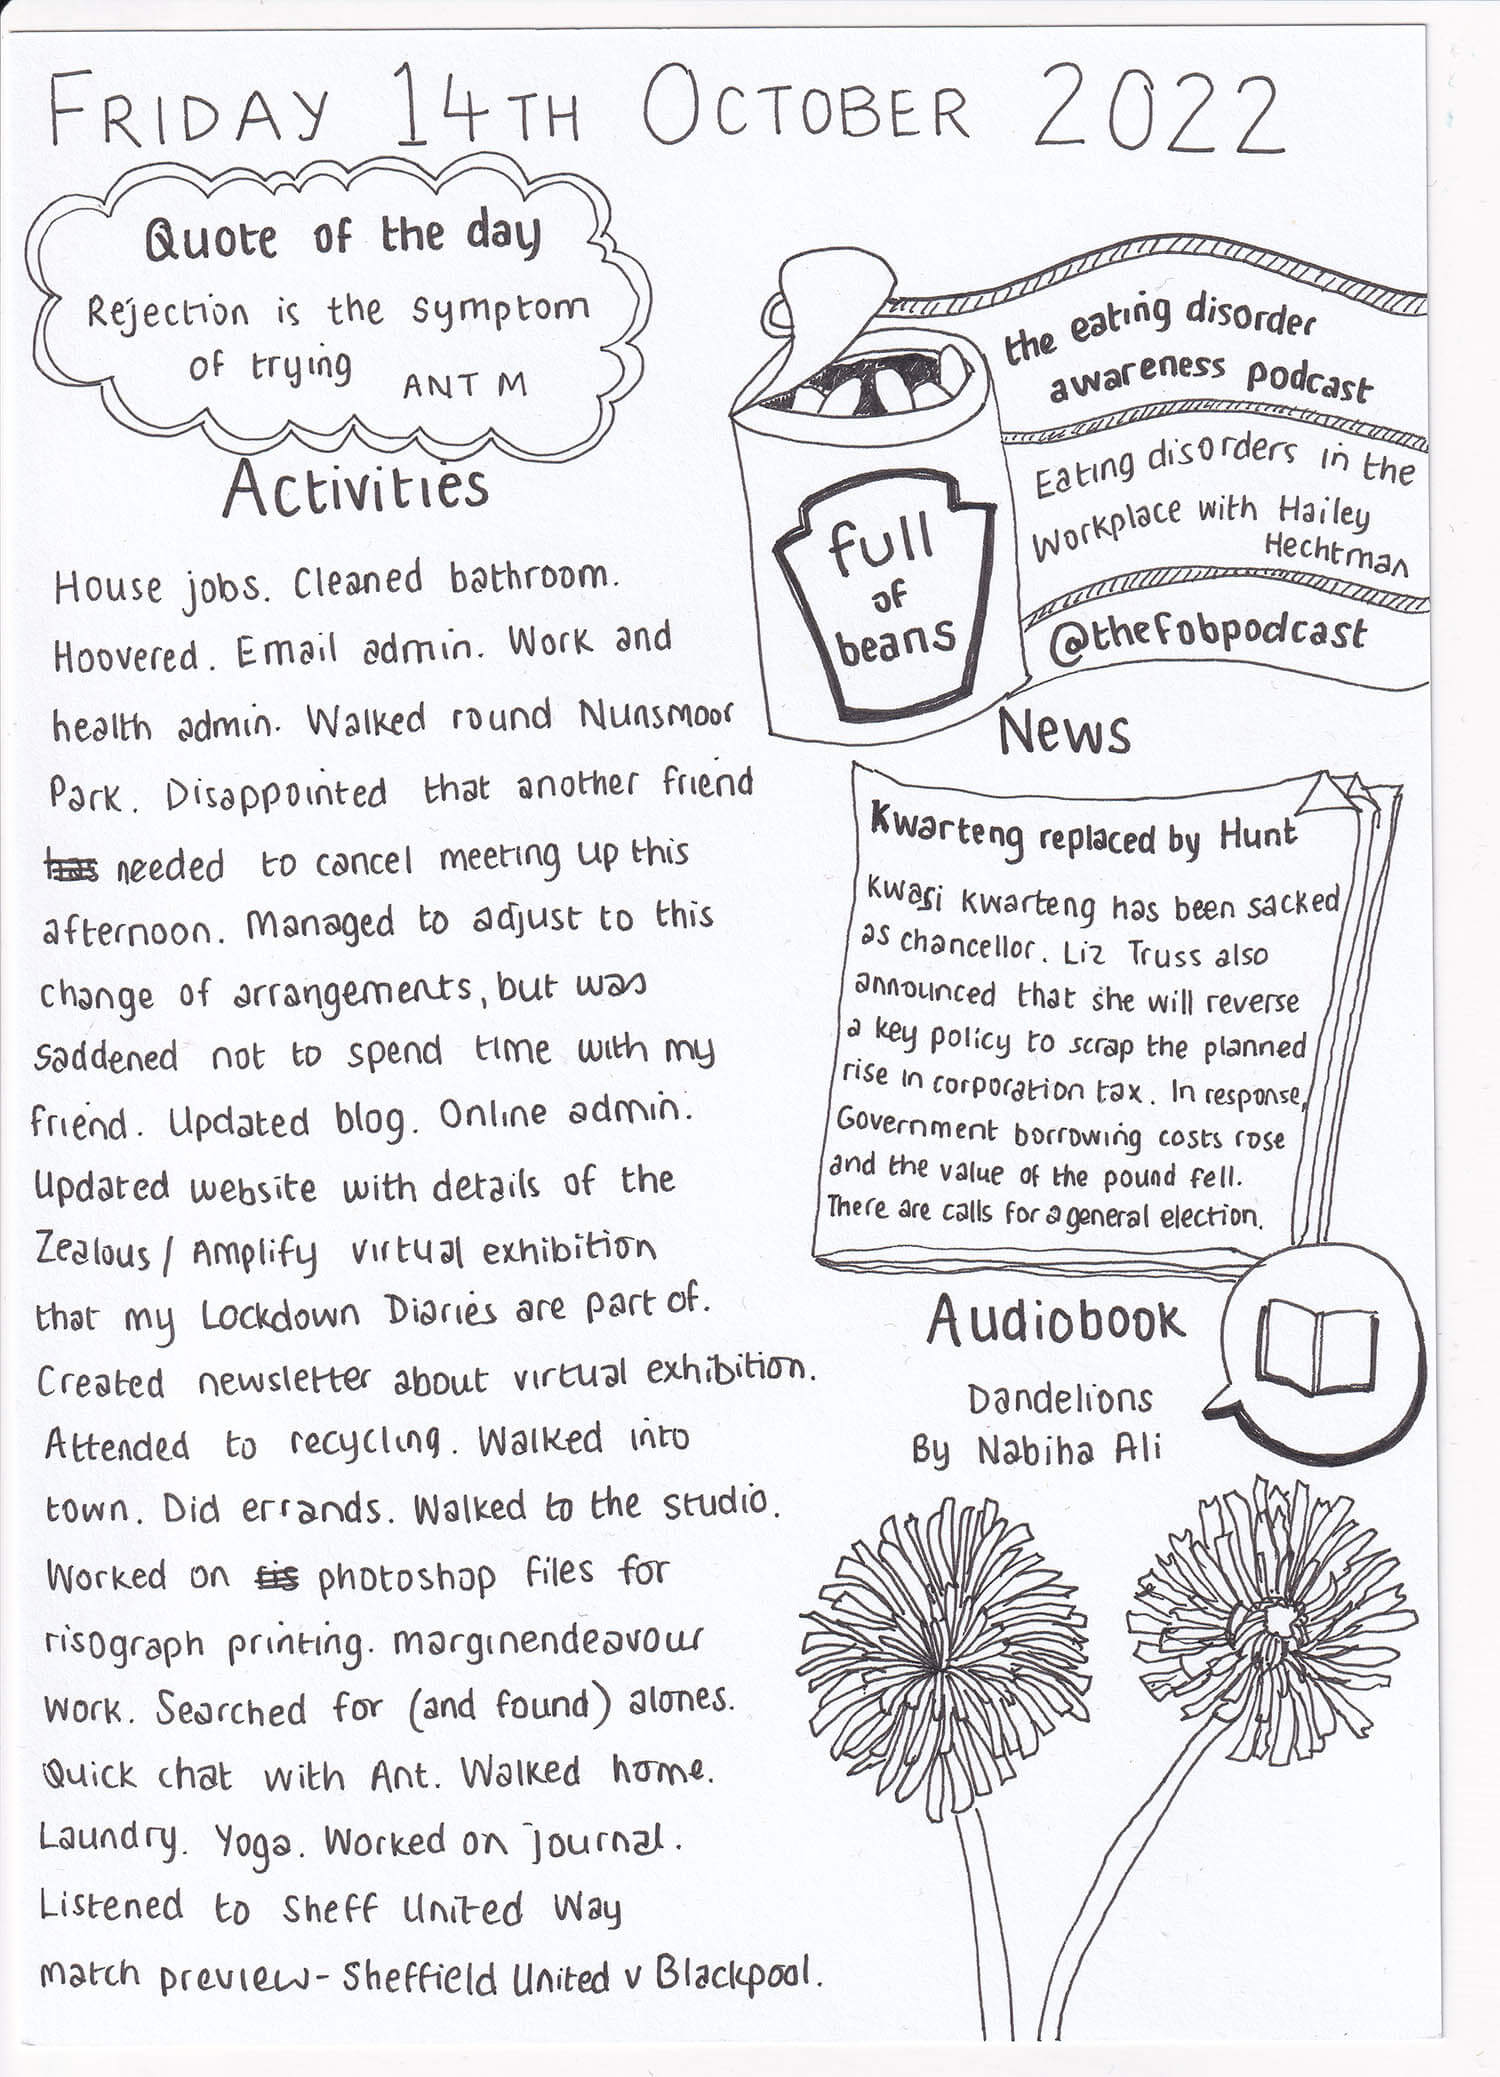 FRIDAY 14TH OCTOBER 2022
Quote of the day
Rejection is the symptom
of trying
ANT M
Activities
House jobs. Cleaned bathroom.
Hoovered. Email admin. Work and
health admin. Walked round Nunsmoor
Park. Disappointed that another friend
has needed to cancel meeting up this
afternoon. Managed to adjust to this
change of arrangements, but was
saddened not to spend time with my
friend. Updated blog. Online admin.
Updated website with details of the
Zealous / Amplify virtual exhibition
that my Lockdown Diaries are part of.
Created newsletter about virtual exhibition.
Attended to recycling. Walked into
town. Did errands. Walked to the studio.
Worked on photoshop files for
risograph printing. marginendeavour
work. Searched for (and found) alones.
Quick chat with Ant. Walked home.
Laundry. Yoga. Worked on journal.
Listened to Sheff United Way
match preview - Sheffield United v Blackpool.
full
of
beans
the eating disorder
awareness podcast
Eating disorders in the
Workplace with Hailey
Hechtman
@thefobpodcast
News
Kwarteng replaced by Hunt
Kwasi Kwarteng has been sacked
as chancellor. Liz Truss also
announced that she will reverse
a key policy to scrap the planned
rise in corporation tax. In response,
Government borrowing costs rose
and the value of the pound fell.
There are calls for a general election.
Audiobook
Dandelions
By Nabiha Ali